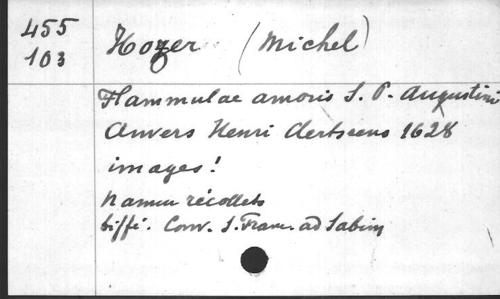 455
103
Hozer (Michel)
Flammulae amoris S. P. Augustini
Anvers Henri Aertssens 1628
images!
Namur récollets
biffé. Conv. S. Franc. ad Sabim